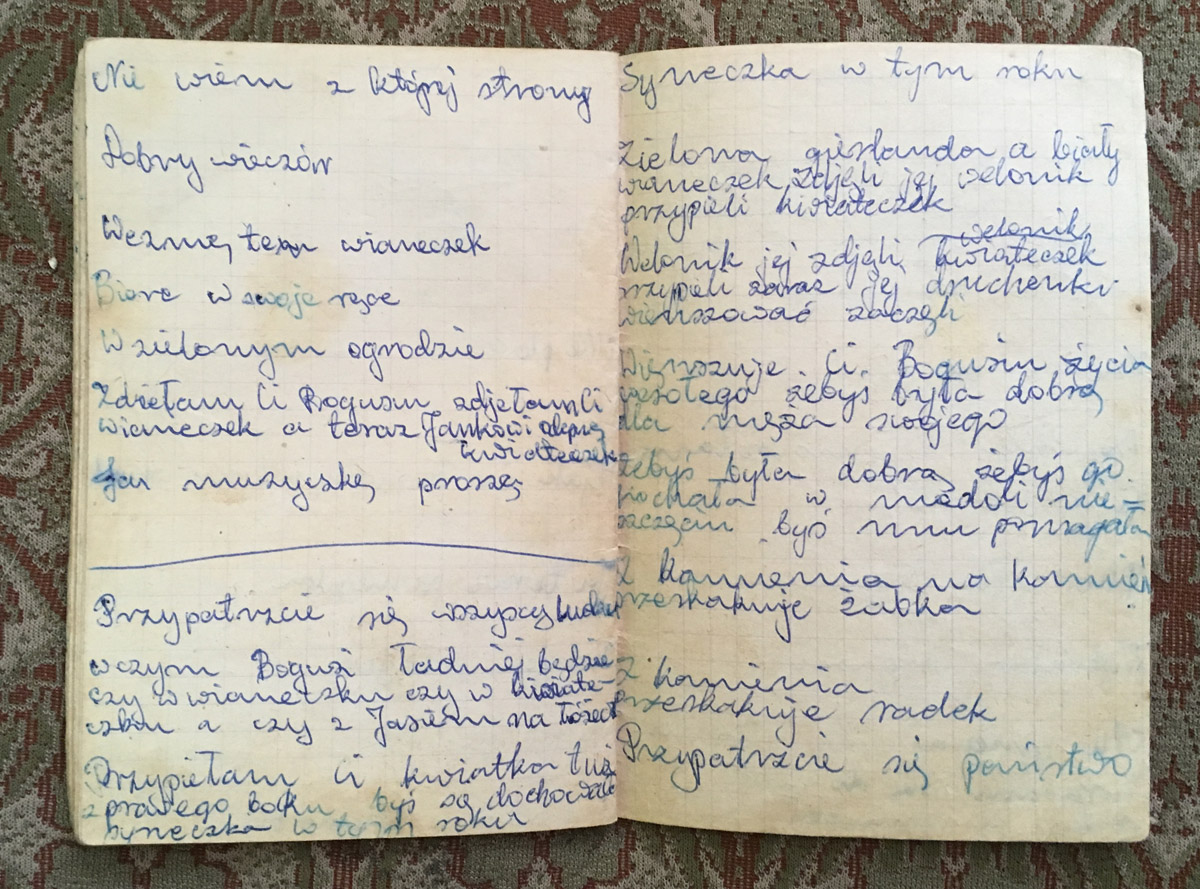 Nie wiem z której strony
Dobry wieczór
Wezmę ten wianeczek
Biorę w swoje ręce
W zielonym ogrodzie
Zdiełam Ci Bogusiu zdjełam Ci
wianeczek a teraz Jankowi
kwiateczek
muzyczkę proszę
Przypatrzcie się wszyscy ludzie
wczym Bogusi ładniej będzie
czy w wianeczku czy w kwiate-
czku a czy z Jasiem na łóżect
Przypiełam Ci kwiatka tuż
z prawego boku byś są dochowała
syneczka w tym roku
Syneczka w tym roku
Zielona gierlanda a biały
wianeczek zdjęli jej welonik
przypieli kwiateczek
welonik
Welonik jej zdjęli kwiateczek
przypieli zaraz jej druchenki
wierszować zaczęli
Wierszuje Ci Bogusiu życia
wesołego żebyś była dobrą
dla męża swojego
żebyś była dobrą żebyś go
kochała w niedoli nie=
szczęciu byś mu pomagała
Z kamienia na kamień
przeskakuje żabka
Z kamienia
przeskakuje radek
Przypatrzcie się państwo